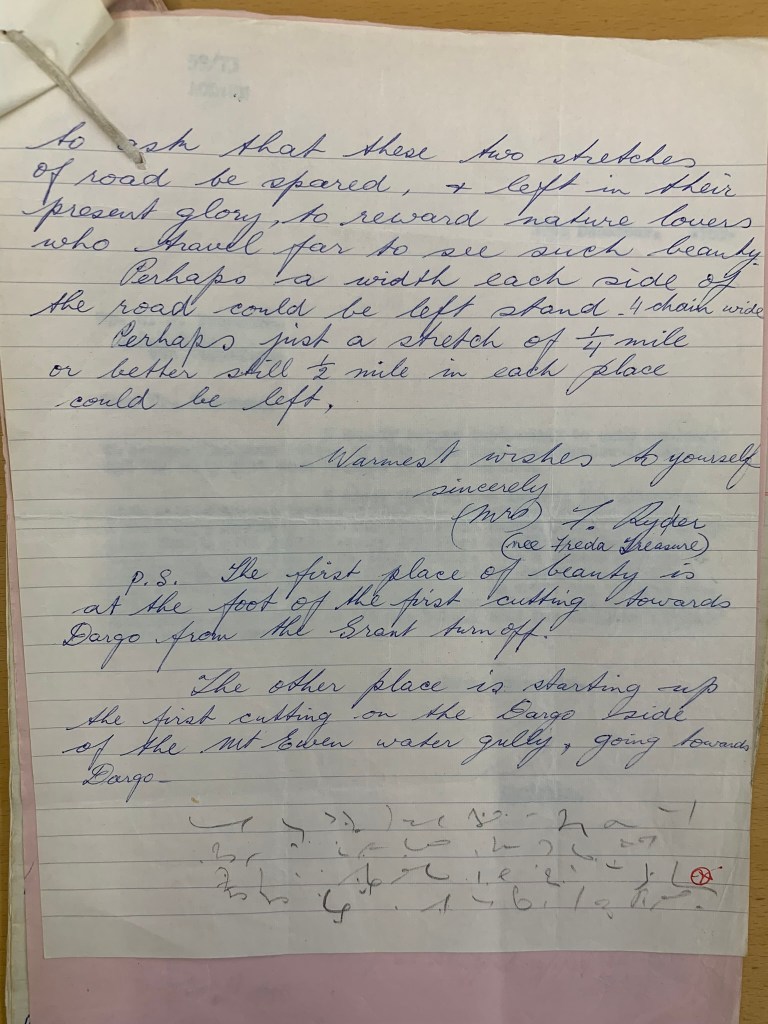 to ask that these two stretches
of road be spared, & left in their
present glory, to reward nature lovers
who travel far to see such beauty.
Perhaps a width each side of
the road could be left stand - 4 chain wide
Perhaps just a stretch of 1/4 mile
or better still 1/2 mile in each place
could be left.
Warmest wishes to yourself
sincerely
(Mrs) F. Ryder
(nee Freda Treasure)
P.S. The first place of beauty is
at the foot of the first cutting towards
Dargo from the Grant turn off.
The other place is starting up
the first cutting on the Dargo side
of the Mt Ewen water gully, going towards
Dargo -